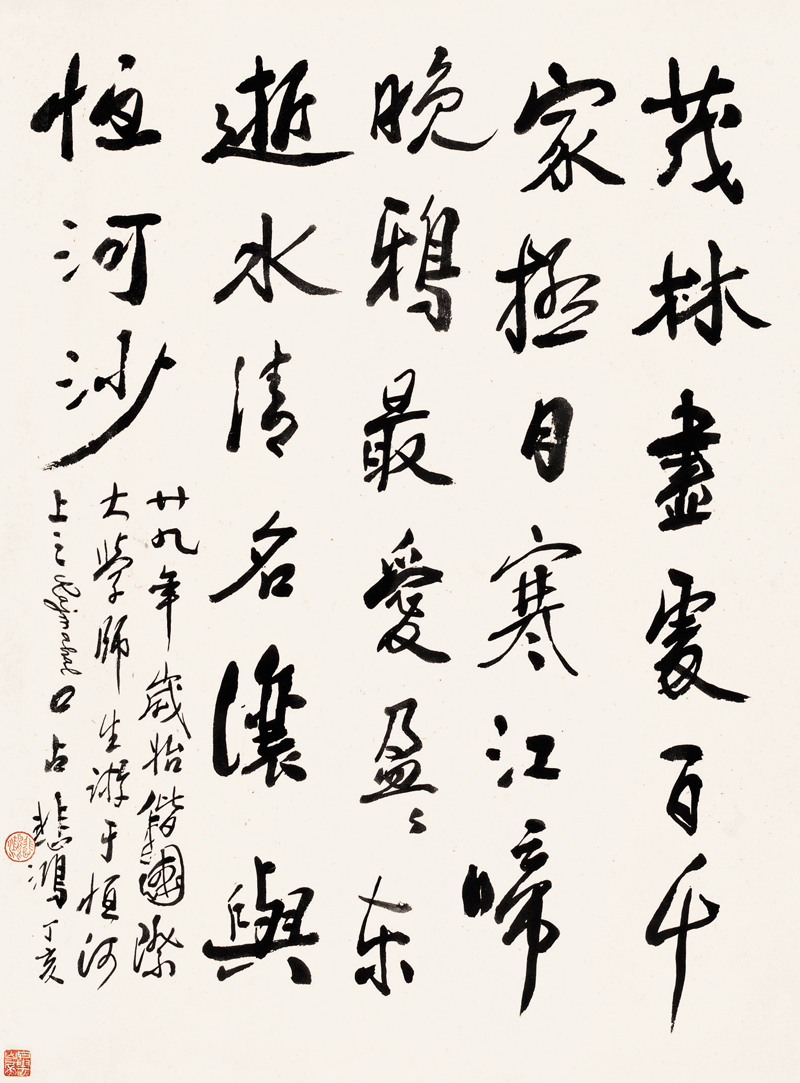 茂林盡處百千
家極目寒江啼
晚鴉最愛盈〻東
逝水清名讓與
恒河沙
廿九年歲始偕國際
大學師生游于恒河
上之Rajmahal口占 悲鴻 丁亥